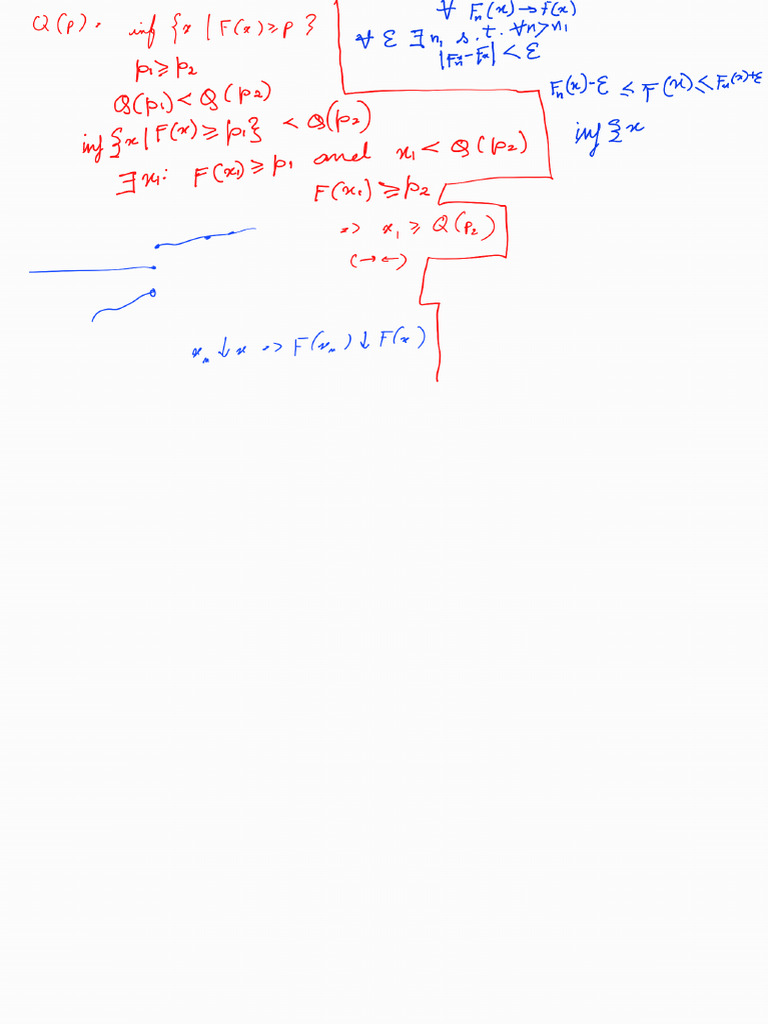 Q(p) = inf {x | F(x) ≥ p}
p₁ ≥ p₂
Q(p₁) < Q(p₂)
inf {x | F(x) ≥ p₁} < Q(p₂)
∃ x₁: F(x₁) ≥ p₁ and x₁ < Q(p₂)
F(x₁) ≥ p₂
=> x₁ ≥ Q(p₂)
(→←)
xₙ ↓ x => F(xₙ) ↓ F(x)
∀ Fₙ(x) → f(x)
∀ ε ∃ n₁ s.t. ∀n > n₁
|Fₙˣ - Fˣ| < ε
Fₙ(x) - ε ≤ F(x) ≤ Fₙ(x) + ε
inf {x